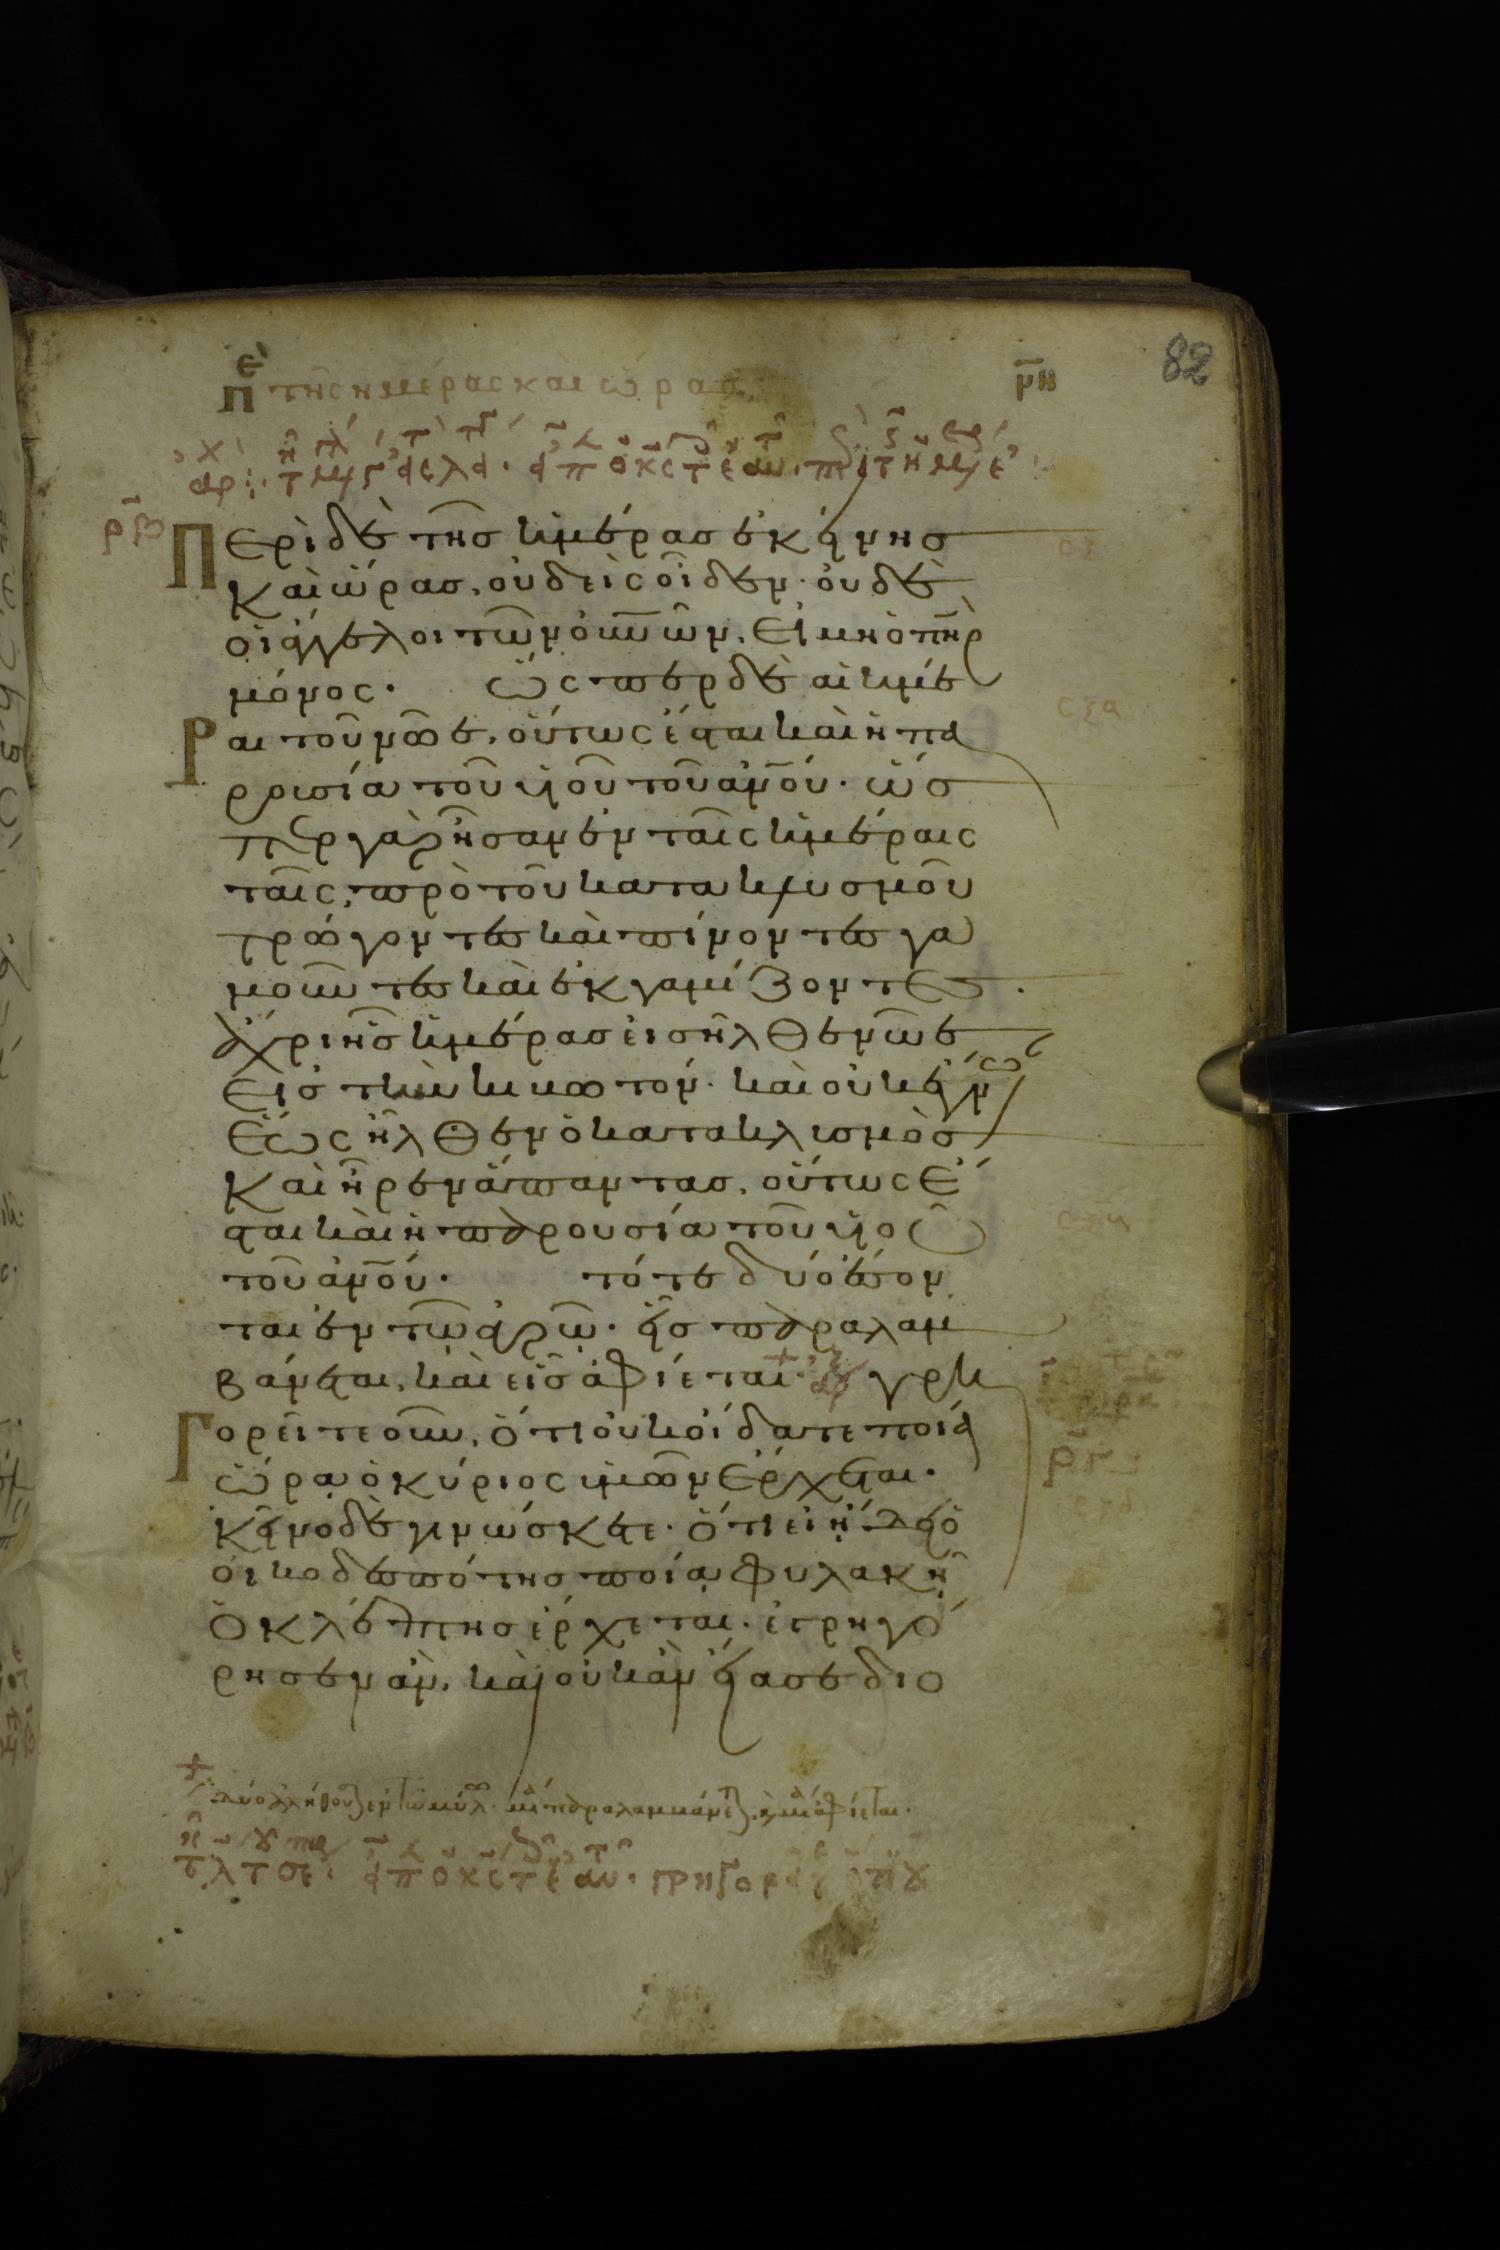 82
πε τῆς ἡμέρας καὶ ὥρας
ΜΗ
ρβ
Περὶ δὲ τῆς ἡμέρας ἐκείνης
καὶ ὥρας, οὐδεὶς οἶδεν· οὐδὲ
οἱ ἄγγελοι τῶν οὐνῶν, εἰ μὴ ὁ πηρ
μόνος· ὥσπερ δὲ αἱ ἡμέ
ραι τοῦ νῶε, οὕτως ἔσται καὶ ἡ πα
ρουσία τοῦ υἱοῦ τοῦ ἀνου· ὡσ
περ γὰρ ἦσαν ἐν ταῖς ἡμέραις
ταῖς, πρὸ τοῦ κατακλυσμοῦ
τρώγοντες καὶ πίνοντες γα
μοῦντες καὶ ἐκγαμίζοντες.
ἄχρι ἧς ἡμέρας εἰσῆλθεν νῶε
εἰς τὴν κιβωτόν· καὶ οὐκ ἔγνω
ἕως ἦλθεν ὁ κατακλισμὸς
καὶ ἦρεν ἅπαντας, οὕτως ἔ
σται καὶ ἡ παρουσία τοῦ υἱοῦ
τοῦ ἀνου· τότε δύο ἔσον
ται ἐν τῷ ἀγρῷ· εἷς παραλαμ
βάνεται, καὶ εἷς ἀφίεται· γρη
γορεῖτε οὖν, ὅτι οὐκ οἴδατε ποίᾳ
ὥρᾳ ὁ κύριος ὑμῶν ἔρχεται·
κεῖνο δὲ γινώσκετε· ὅτι εἰ ᾔδει ὁ
οἰκοδεσπότης ποίᾳ φυλακῇ
ὁ κλέπτης ἔρχεται· ἐγρηγό
ρησεν ἄν, καὶ οὐκ ἂν εἴασε διο
+ δύο ἀλήθουσαι ἐν τῷ μύλωνι· μία παραλαμβάνεται, καὶ μία ἀφίεται·